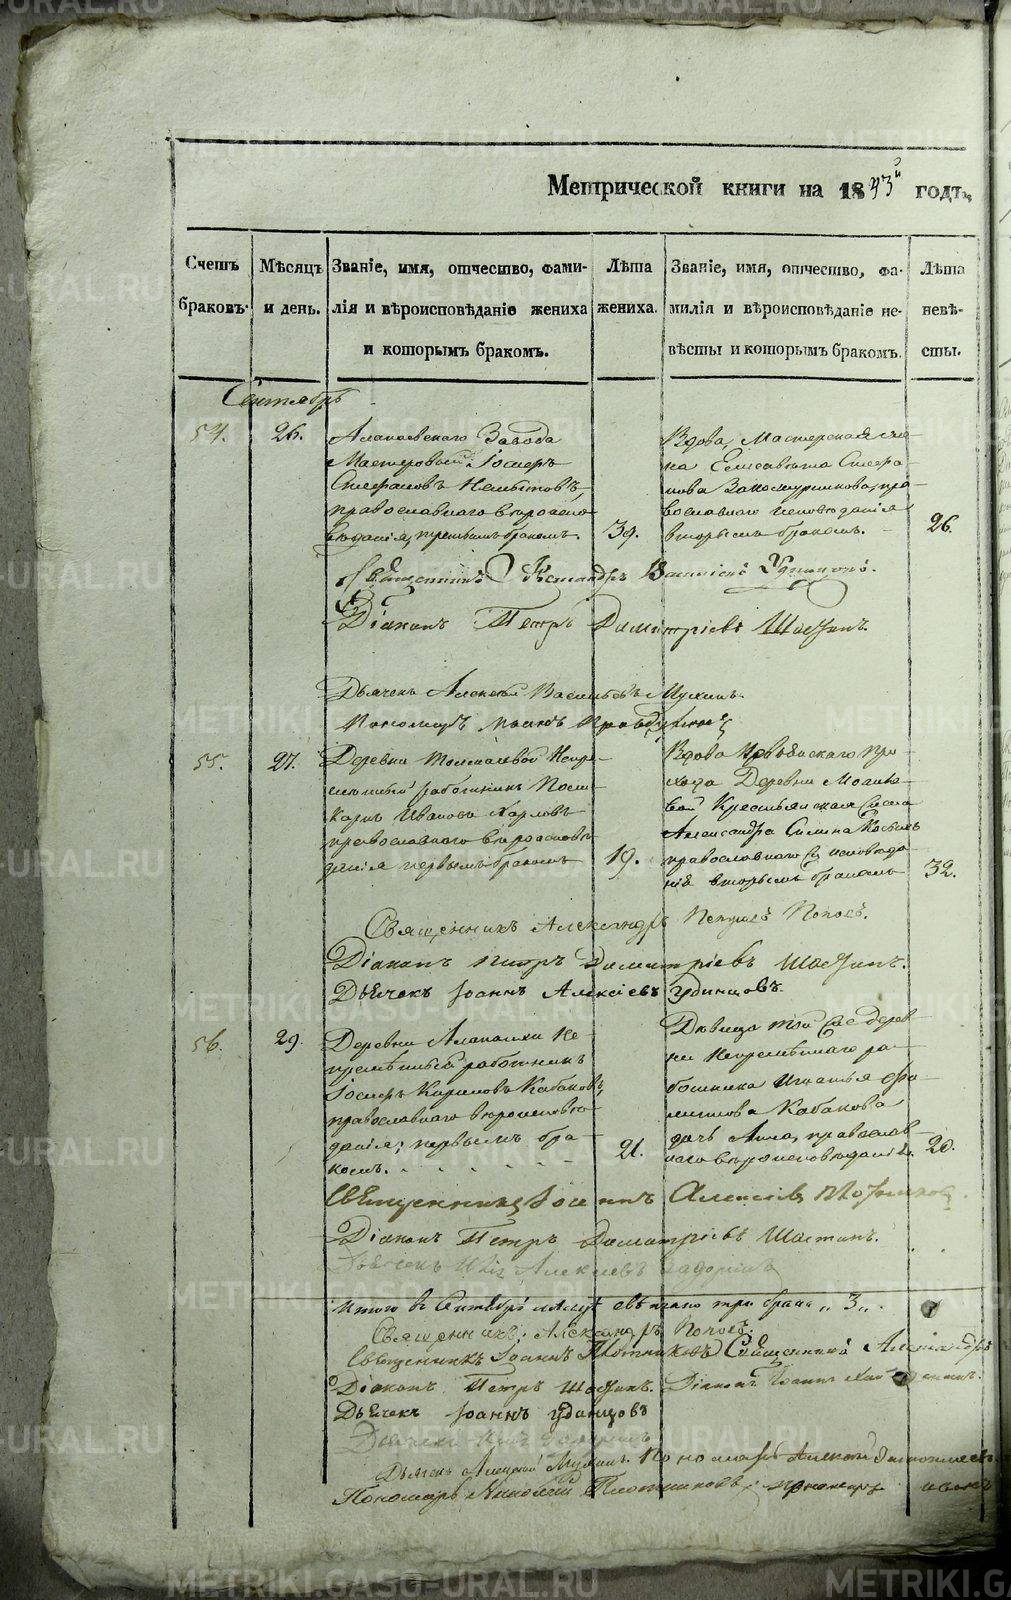 Метрической книги на 1843й годъ,
Счетъ браковъ.
Мѣсяцъ и день.
Званіе, имя, отчество, фами-
лія и вѣроисповѣданіе жениха
и которымъ бракомъ.
Лѣта жениха.
Званіе, имя, отчество, фа-
милія и вѣроисповѣданіе не-
вѣсты и которымъ бракомъ.
Лѣта невѣ-
сты.
Сентябрь
54.
26.
Алапаевскаго Завода
Мастеровый Іосифъ
Стефановъ
православнаго вѣроиспо
вѣданія, третьимъ бракомъ.
39.
Вдова, Мастерская же-
на Елисавета Стефа-
нова
вославнаго исповѣданія
вторымъ бракомъ.
26.
Священникъ Удинцовъ.
Діаконъ Петръ Димитріевъ Шастинъ.
Дьячекъ Алексѣй Васильевъ Мухинъ.
Пономарь
55.
27.
Деревни Толмачевой Непре-
мѣнный работникъ Поли-
карпъ Ивановъ Харловъ
православнаго вѣроисповѣ
данія первымъ бракомъ
19.
Вдова при-
хода Деревни
Крестьянская
Александра Силина
православнаго исповѣда
нія вторымъ бракомъ
32.
Священникъ Александръ Петровъ Поповъ.
Діаконъ Петръ Димитріевъ Шастинъ.
Дьячекъ Іоаннъ Алексіевъ Удинцовъ.
56.
29.
Деревни Алапаихи Не
премѣнный работникъ
Іосифъ Кириловъ Кабаковъ,
православнаго вѣроисповѣ
данія; первымъ бра-
комъ.
21.
Дѣвица той же дерев-
ни Непремѣннаго ра-
ботника Игнатья
Кабакова
дочь Анна, православ-
наго вѣроисповѣданія.
20.
Священникъ Іоаннъ Алексіевъ Плотниковъ.
Діаконъ Петръ Димитріевъ Шастинъ.
Дьячекъ Алексіевъ
Итого въ Сентябрѣ мѣсяцѣ три брака „3„.
Священникъ Александръ Поповъ.
Священникъ Іоаннъ Плотниковъ Священникъ Александръ
Діаконъ Петръ Шастинъ. Діаконъ Іоаннъ
Дьячекъ Іоаннъ Удинцовъ
Дьячекъ
Дьячекъ Алексѣй Мухинъ. Пономарь Алексѣй
Пономарь Николай Плотниковъ. Пономарь
METRIKI.GASO-URAL.RU